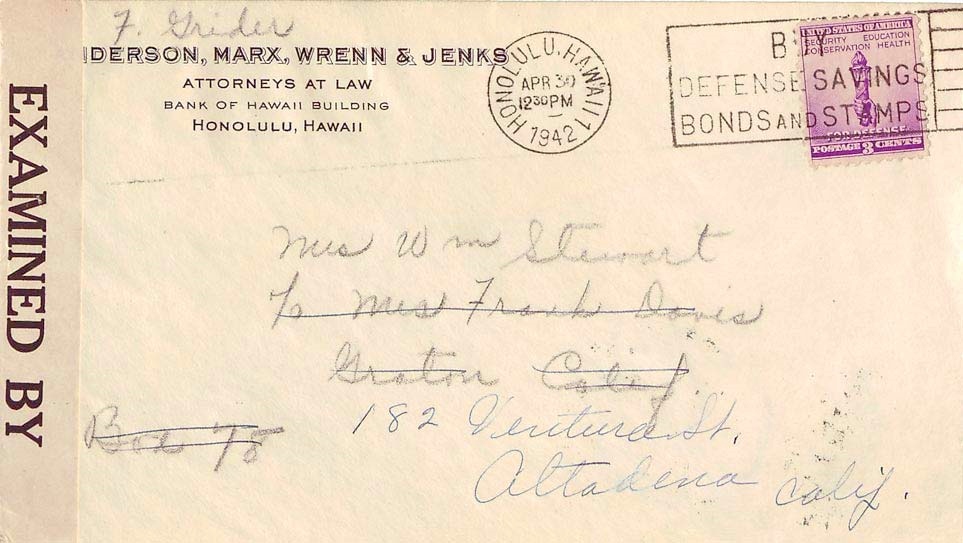 EXAMINED BY
F. Grider
NDERSON, MARX, WRENN & JENKS
ATTORNEYS AT LAW
BANK OF HAWAII BUILDING
HONOLULU, HAWAII
HONOLULU, HAWAII 1
APR 30
1230 PM
1942
BUY
DEFENSE SAVINGS
BONDS AND STAMPS
UNITED STATES OF AMERICA
SECURITY EDUCATION
CONSERVATION HEALTH
FOR DEFENSE
POSTAGE 3 CENTS
Mrs Wm Stewart
c/o Mrs Frank Davis
Graton Calif.
Box 78
182 Ventura St.
Altadena Calif.